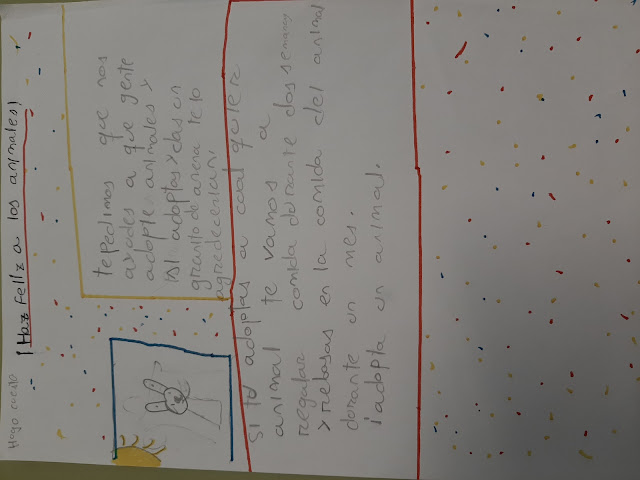 Hugo
¡Haz feliz a los animales!
te pedimos que nos
ayudes a que gente
adopte animales y
¡SI adoptas y das un
granito de arena te lo
agredecerian.
Si tú adoptas a cual quiler
animal te vamos a
regalar comida dorante dos semanas
y rebasas en la comida del animal
dorante un mes.
¡adopta un animal.